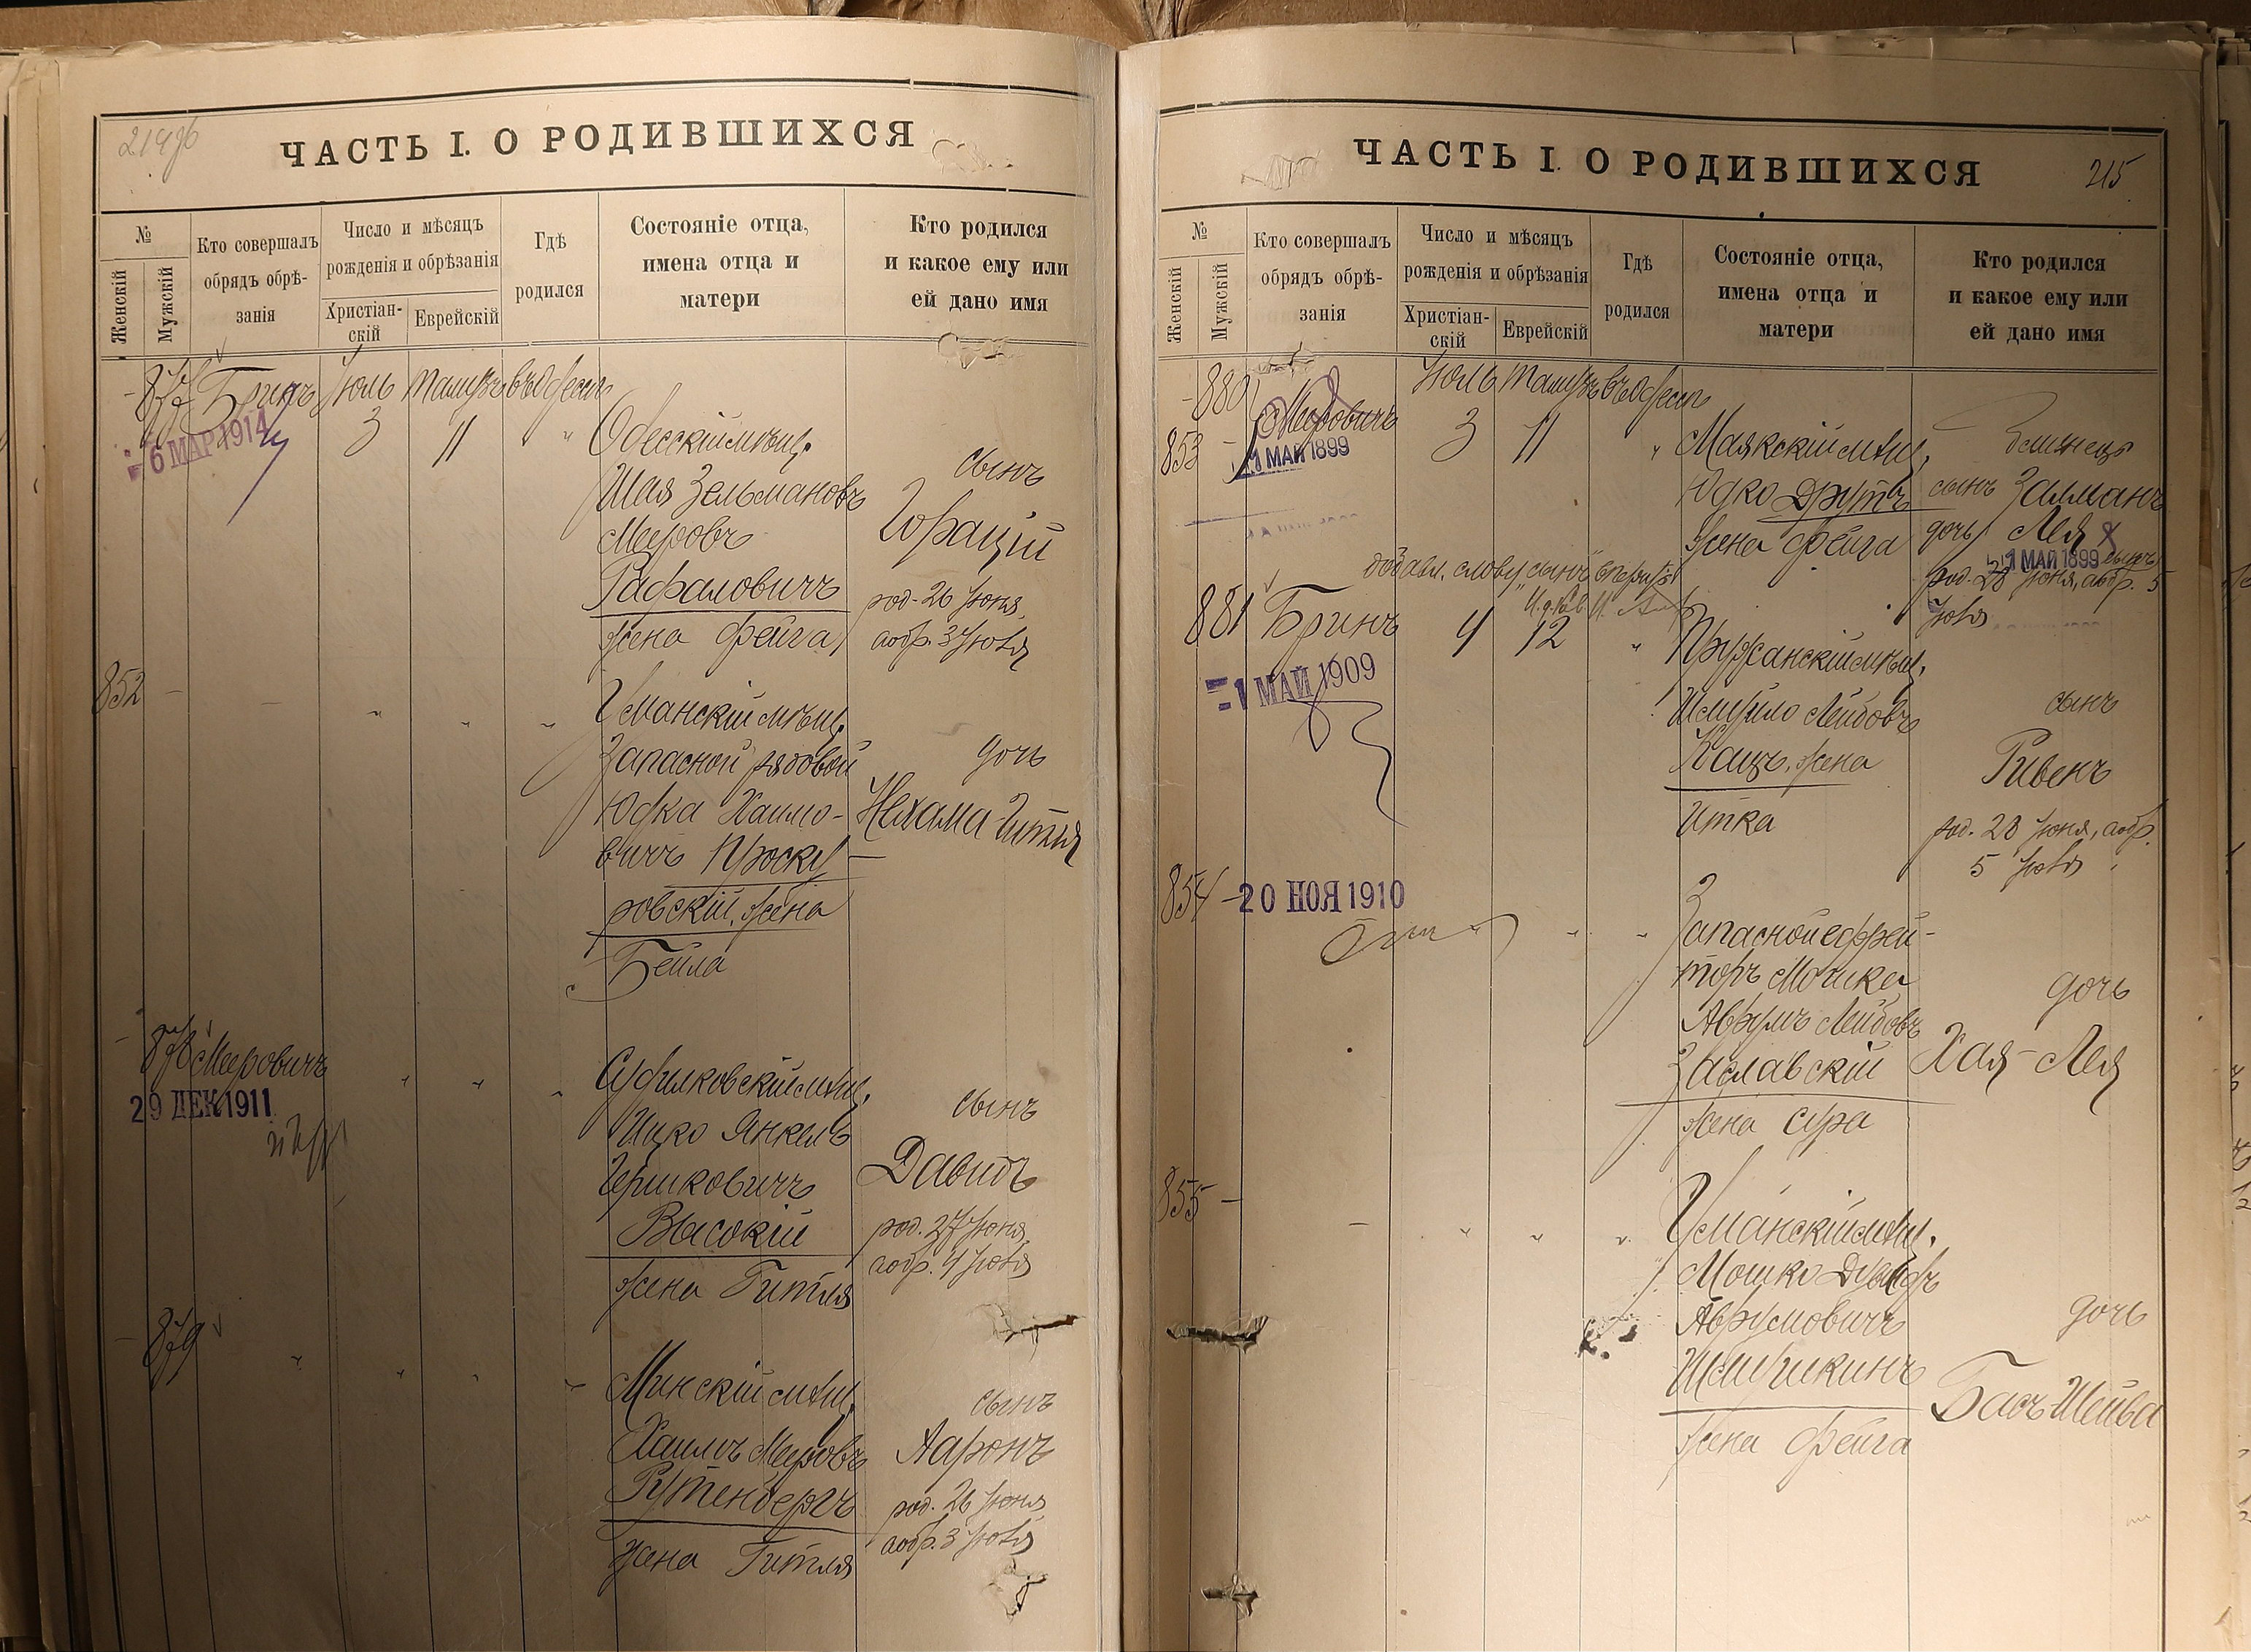 214об
ЧАСТЬ I. О РОДИВШИХСЯ
№
Женскій
Мужскій
Кто совершалъ
обрядъ обрѣ-
занія
Число и мѣсяцъ
рожденія и обрѣзанія
Христіан-
скій
Еврейскій
Гдѣ
родился
Состояніе отца,
имена отца и
матери
Кто родился
и какое ему или
ей дано имя
- 877 Бринъ Іюль Тамузъ въ Одессѣ
6 МАР 1914
3 11 " Одесскій мѣщ.
Шая Зельмановъ
Мееровъ
Рафаловичъ
жена Фейга
сынъ
Горацій
род. 26 Іюня,
аобр. 3 Іюля
852 - - " " " Уманскій мѣщ.
Запасной рядовой
Юдка Хаимо-
вичъ Проску-
ровскій, жена
Бейла
дочь
Нехама-Гитля
- 878 Мееровичъ " " " Судилковскій мѣщ.
29 ДЕК 1911
Ицко Янкель
Гершковичъ
Высокій
жена Гитля
сынъ
Давидъ
род. 27 Іюня,
аобр. 4 Іюля
- 879 " " " " Минскій мѣщ.
Хаимъ Мееровъ
Рутенбергъ
жена Гитля
сынъ
Ааронъ
род. 26 Іюня
аобр. 3 Іюля
ЧАСТЬ I. О РОДИВШИХСЯ
215
№
Женскій
Мужскій
Кто совершалъ
обрядъ обрѣ-
занія
Число и мѣсяцъ
рожденія и обрѣзанія
Христіан-
скій
Еврейскій
Гдѣ
родился
Состояніе отца,
имена отца и
матери
Кто родился
и какое ему или
ей дано имя
- 880 Мееровичъ Іюль Тамузъ въ Одессѣ
853 - 3 11 " Маякскій мѣщ.
1 МАЙ 1899
Юдко Друтъ
жена Фейга
близнецы
сынъ Залманъ
дочь Лея
1 МАЙ 1899
род. 28 Іюня, аобр. 5
Іюля
добавл. слову "сынъ"
881 Бринъ 4 12 " Пружанскій мѣщ.
1 МАЙ 1909
Шмуйло Лейбовъ
Кацъ, жена
Итка
сынъ
Ривенъ
род. 28 Іюня, аобр.
5 Іюля
854 - 20 НОЯ 1910
" " Запасной ефрей-
торъ Мошка
Аврумъ Лейбовъ
Заславскій
жена Сура
дочь
Хая-Лея
855 - - " " " Уманскій мѣщ.
Мошко Дувидъ
Аврумовичъ
Шмушкинъ
жена Фейга
дочь
Басъ Шейва